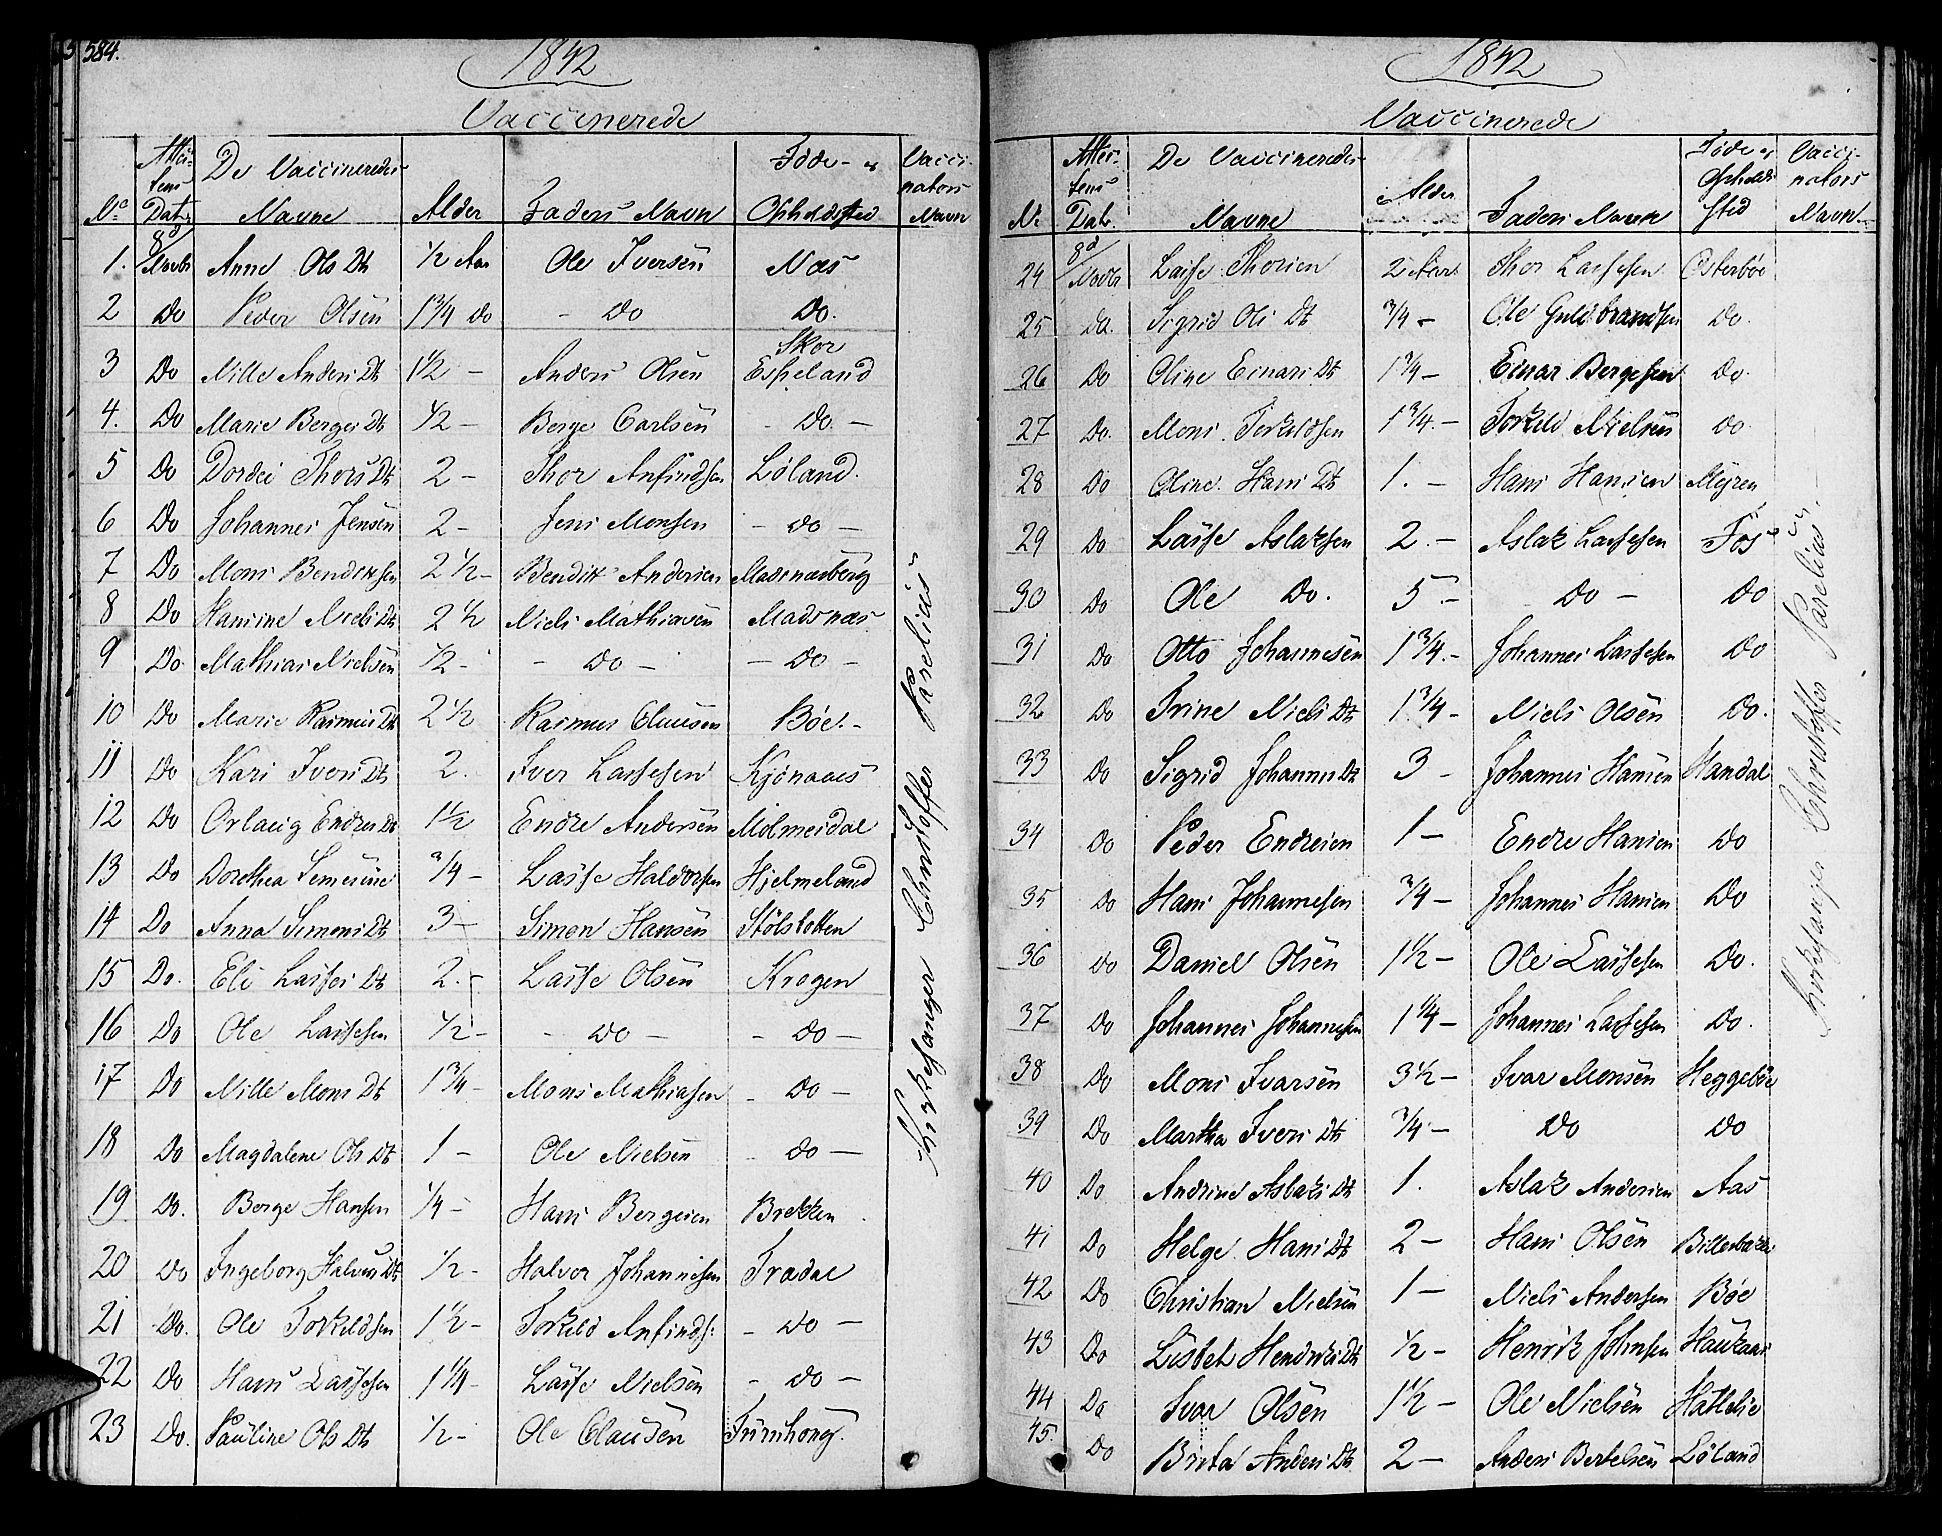 584.
1842
Vaccinerede
No | Attestens Dat. | De Vaccineredes Navne | Alder | Faders Navn | Føde- og Opholdsted | Vaccinators Navn
1. | 8d/Novbr | Anne Ols Dt | 1/2 Aar | Ole Iversen | Næs
2 | Do | Peder Olsen | 1 3/4 Do | - Do | Do.
3 | Do | Nille Anders Dt | 1 1/2 - | Anders Olsen | Skor Espeland
4. | Do | Marie Berges Dt | 1/2 - | Berge Carlsen | - Do -
5 | Do | Dordei Thors Dt | 2 - | Thor Anfindsen | Løland.
6 | Do | Johannes Jensen | 2 - | Jens Monsen | - Do -
7 | Do | Mons Bendiktsen | 2 1/2 - | Bendikt Andersen | Madsnæsberg
8 | Do | Hansine Niels Dt | 2 1/2 | Niels Mathiasen | Madsnæs
9 | Do | Mathias Nielsen | 1/2 - | - Do - | - Do -
10 | Do | Marie Rasmus Dt | 2 1/2 | Rasmus Clausen | Bøe. -
11 | Do | Kari Ivers Dt | 2. | Iver Lassesen | Kjønaaes
12 | Do | Orlaug Endres Dt | 1 1/2 | Endre Andersen | Mölmeidal
13 | Do | Dorthea Semerine | 3/4 - | Lasse Haldorsen | Hjelmeland
14 | Do | Anna Simons Dt | 3 - | Simon Hansen | Stølsletten
15 | Do. | Eli Lasses Dt | 2. - | Lasse Olsen | Krogen
16 | Do | Ole Lassesen | 1/2 - | - Do - | - Do -
17 | Do | Nille Mons Dt | 1 3/4 - | Mons Mathiasen | - Do -
18 | Do | Magdalene Ols Dt | 1 - | Ole Nielsen | - Do -
19 | Do. | Berge Hansen | 1/4 - | Hans Bergesen | Brekken
20 | Do | Ingeborg Halvors Dt | 1/2 - | Halvor Johannesen | Fradal
21 | Do. | Ole Torkildsen | 1 1/2 - | Torkild Anfinds: | - Do -
22 | Do | Hans Lassesen | 1 1/4 - | Lasse Nielsen | - Do -
23 | Do. | Pauline Ols Dt | 1/2 - | Ole Clausen | Furuhoug.
Kirkesanger Christoffer Parelius
1842
Vaccinerede
No | Attestens Dat. | De Vaccineredes Navne | Alder | Faders Navn | Føde og Opholds Sted | Vaccinators Navn
24 | 8d/Novbr | Lasse Thorsen | 2 Aar | Thor Lassesen | Østerbøe
25 | Do. | Sigrid Ols Dt | 3/4 - | Ole Guldbrandsen | Do.
26 | Do | Oline Einars Dt | 1 3/4 - | Einar Bergesen | Do.
27 | Do. | Mons Torkildsen | 1 3/4 - | Torkild Nielsen | Do.
28 | Do | Oline Hans Dt | 1. - | Hans Hansen | Myren
29 | Do | Lasse Aslaksen | 2. - | Aslak Lassesen | Fos
30 | Do | Ole Do. | 5. - | Do - | Do
31 | Do | Otto Johannesen | 1 3/4. - | Johannes Lassesen | Do
32 | Do | Trine Niels Dt | 1 3/4 - | Niels Olsen | Do.
33 | Do | Sigrid Johannes Dt | 3 - | Johannes Hansen | Handal
34 | Do | Peder Endresen | 1 - | Endre Hansen | Do
35 | Do | Hans Johannesen | 3/4 - | Johannes Hansen | Do
36 | Do | Daniel Olsen | 1 1/2 - | Ole Lassesen | Do.
37 | Do | Johannes Johannesen | 1 1/4 - | Johannes Lassesen | Do.
38 | Do | Mons Ivarsen | 3 1/2 - | Ivar Monsen | Heggebøe
39 | Do | Martha Ivers Dt | 3/4 - | Do | Do
40 | Do | Andrine Aslaks Dt | 1. | Aslak Andersen | Aas
41 | Do | Helge Hans Dt | 2 - | Hans Olsen
42 | Do | Christian Nielsen | 1 - | Niels Andersen | Bøe
43 | Do | Lisbet Hendriks Dt | 1/2 - | Henrik Johnsen | Haukaas
44 | Do | Ivar Olsen | 1 1/2 - | Ole Nielsen | Hatlelie
45. | Do | Brita Anders Dt | 2 - | Anders Bertelsen | Løland
Kirkesanger Christoffer Parelius. -